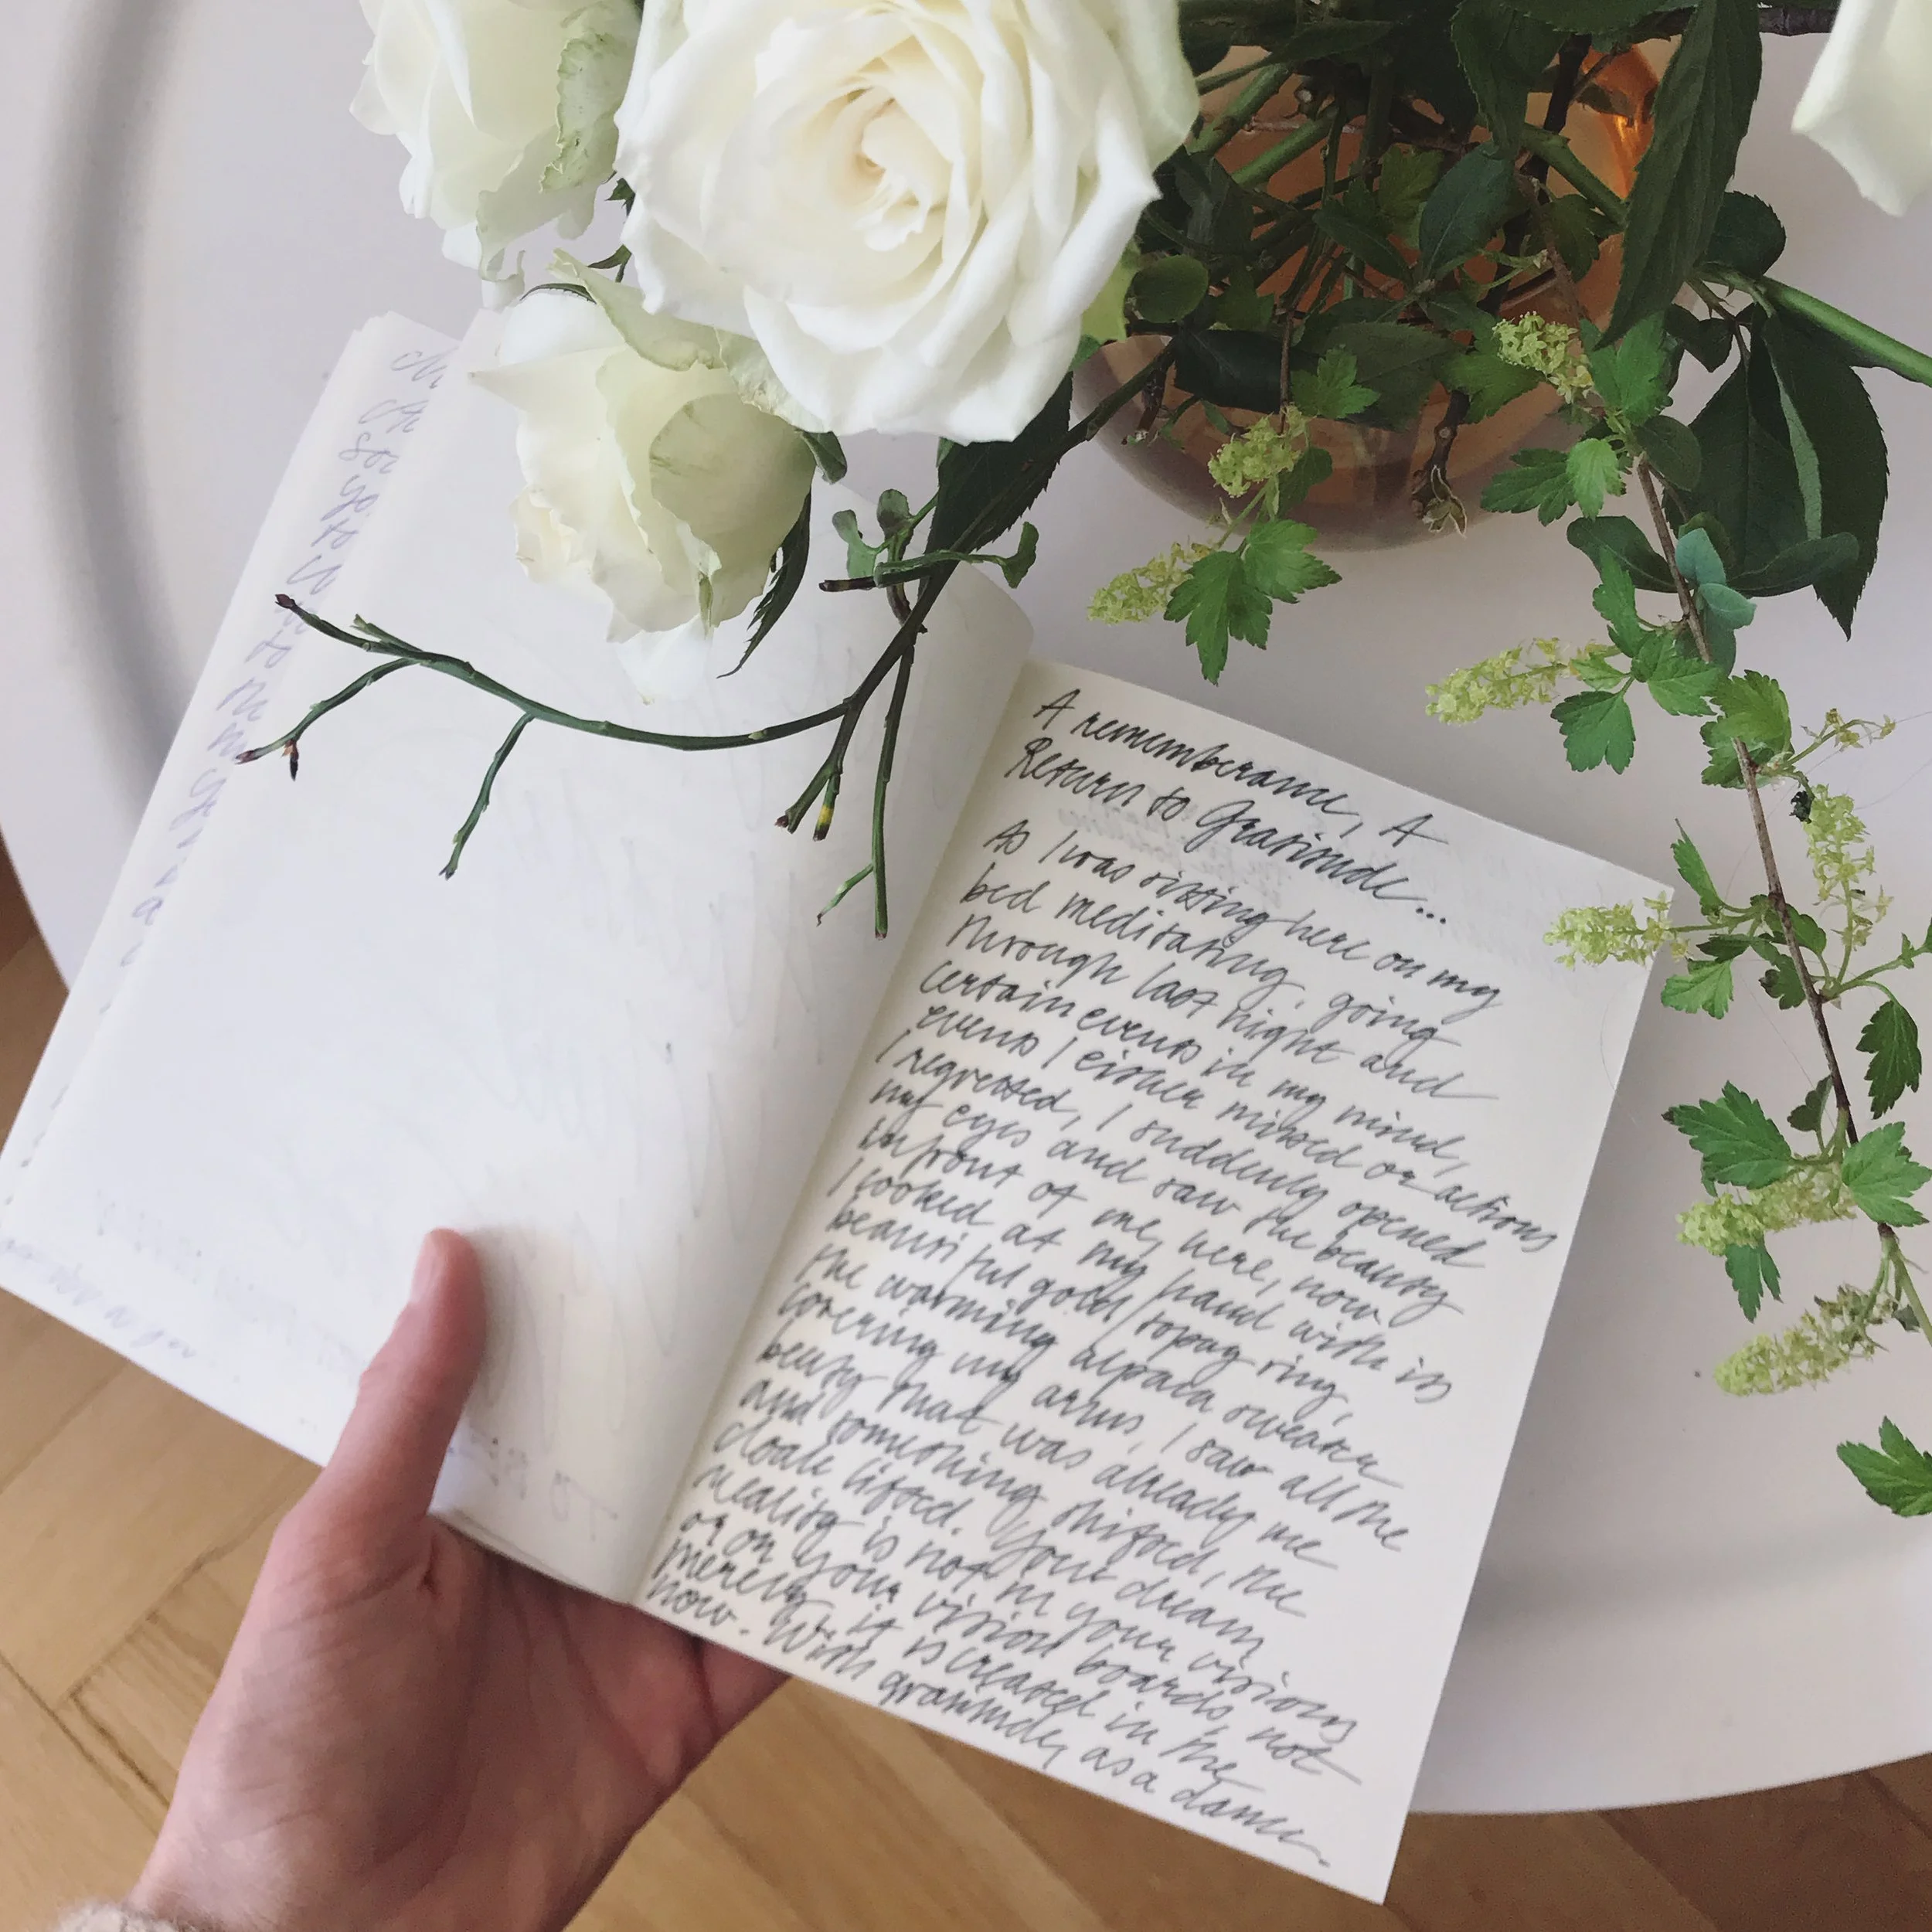 A rememberance, A
Return to Gratitude...
As I was sitting here on my
bed meditating, going
through last night and
certain events in my mind,
events I either missed or actions
I regretted, I suddenly opened
my eyes and saw the beauty
infront of me, here, now.
I looked at my hand with its
beautiful gold/topaz ring,
the warming alpaca sweater
covering my arms, I saw all the
beuty that was already me
and something shifted, the
cloak lifted. Your dream
reality is not in your visions
or on your vision boards, not
merely, it is created in the
now. With gratitude, as a dance.